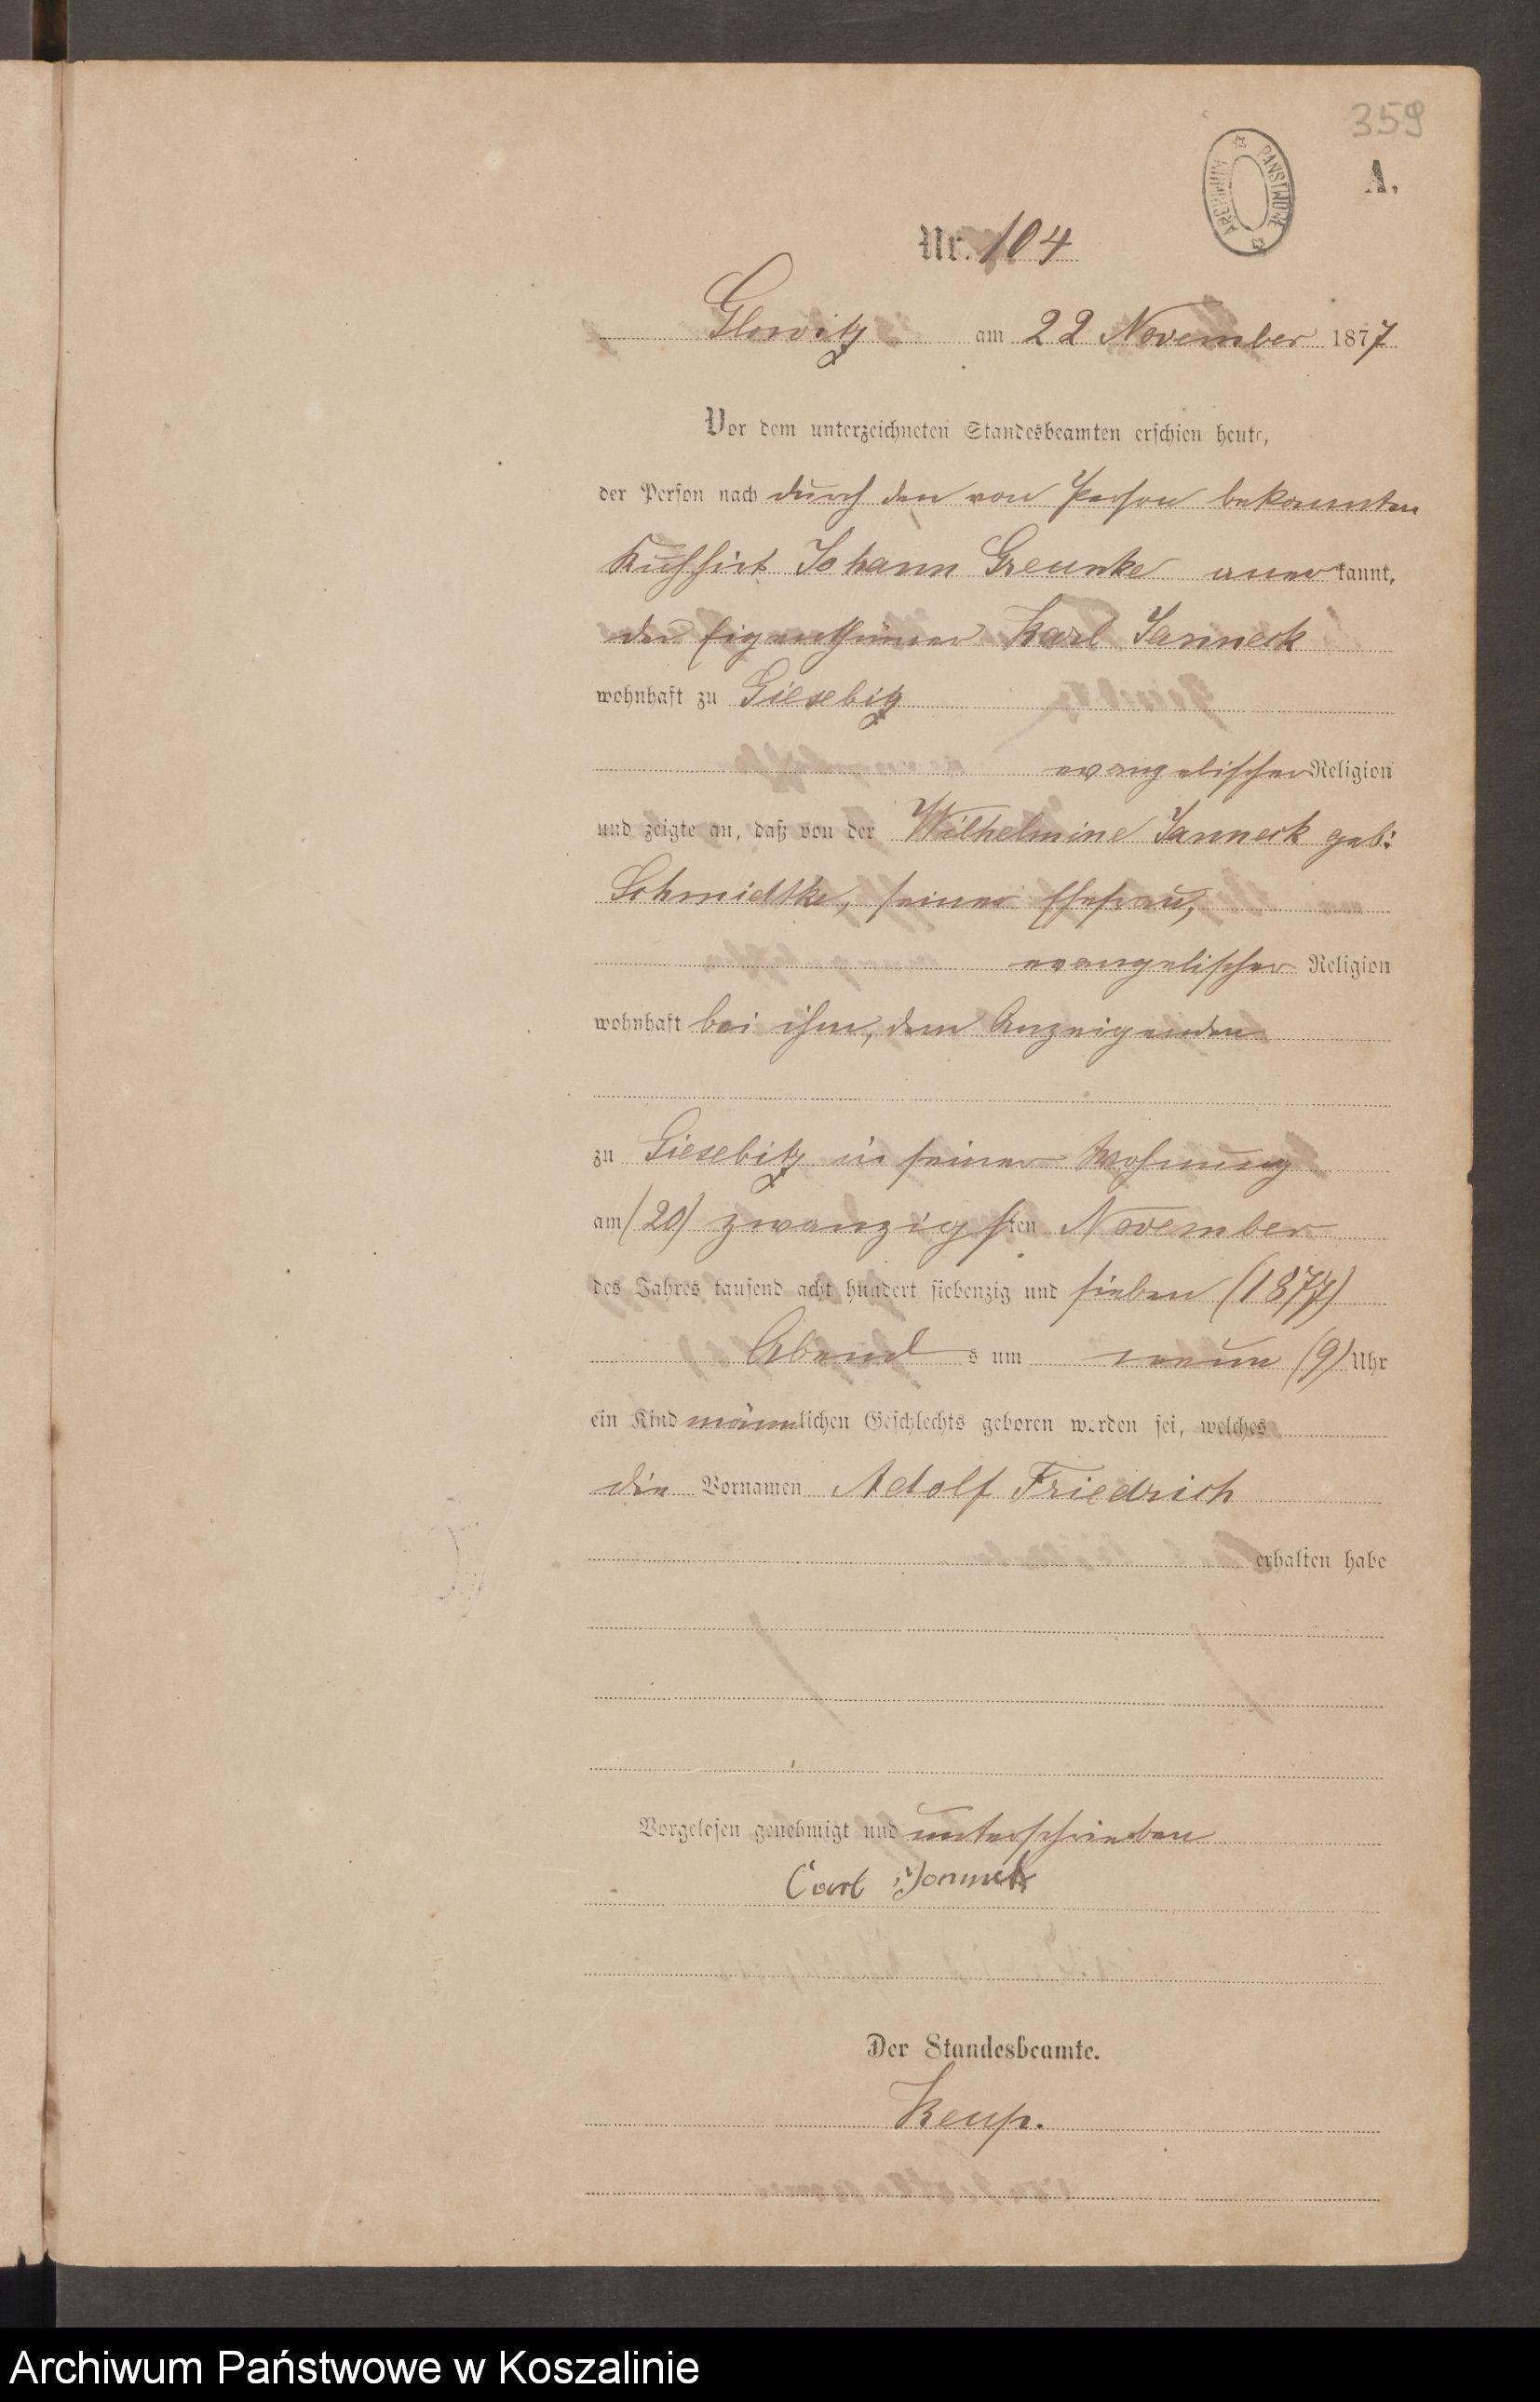 359
ARCHIWUM PAŃSTWOWE
A.
Nr. 104
Glowitz am 22 November 1877
Vor dem unterzeichneten Standesbeamten erschien heute,
der Person nach durch den von Person bekannten
Kuhhirt Johann Greunke anerkannt,
der Eigenthümer Karl Janneck
wohnhaft zu Giesebitz
evangelischer Religion
und zeigte an, daß von der Wilhelmine Janneck geb:
Schmidtke, seiner Ehefrau,
evangelischer Religion
wohnhaft bei ihm, dem Anzeigenden
zu Giesebitz in seiner Wohnung
am (20) zwanzigsten November
des Jahres tausend acht hundert siebenzig und sieben (1877)
Abends um neun (9) Uhr
ein Kind männlichen Geschlechts geboren worden sei, welches
die Vornamen Adolf Friedrich
erhalten habe
Vorgelesen genehmigt und unterschrieben
Carl Jannek
Der Standesbeamte.
Keup.
Archiwum Państwowe w Koszalinie